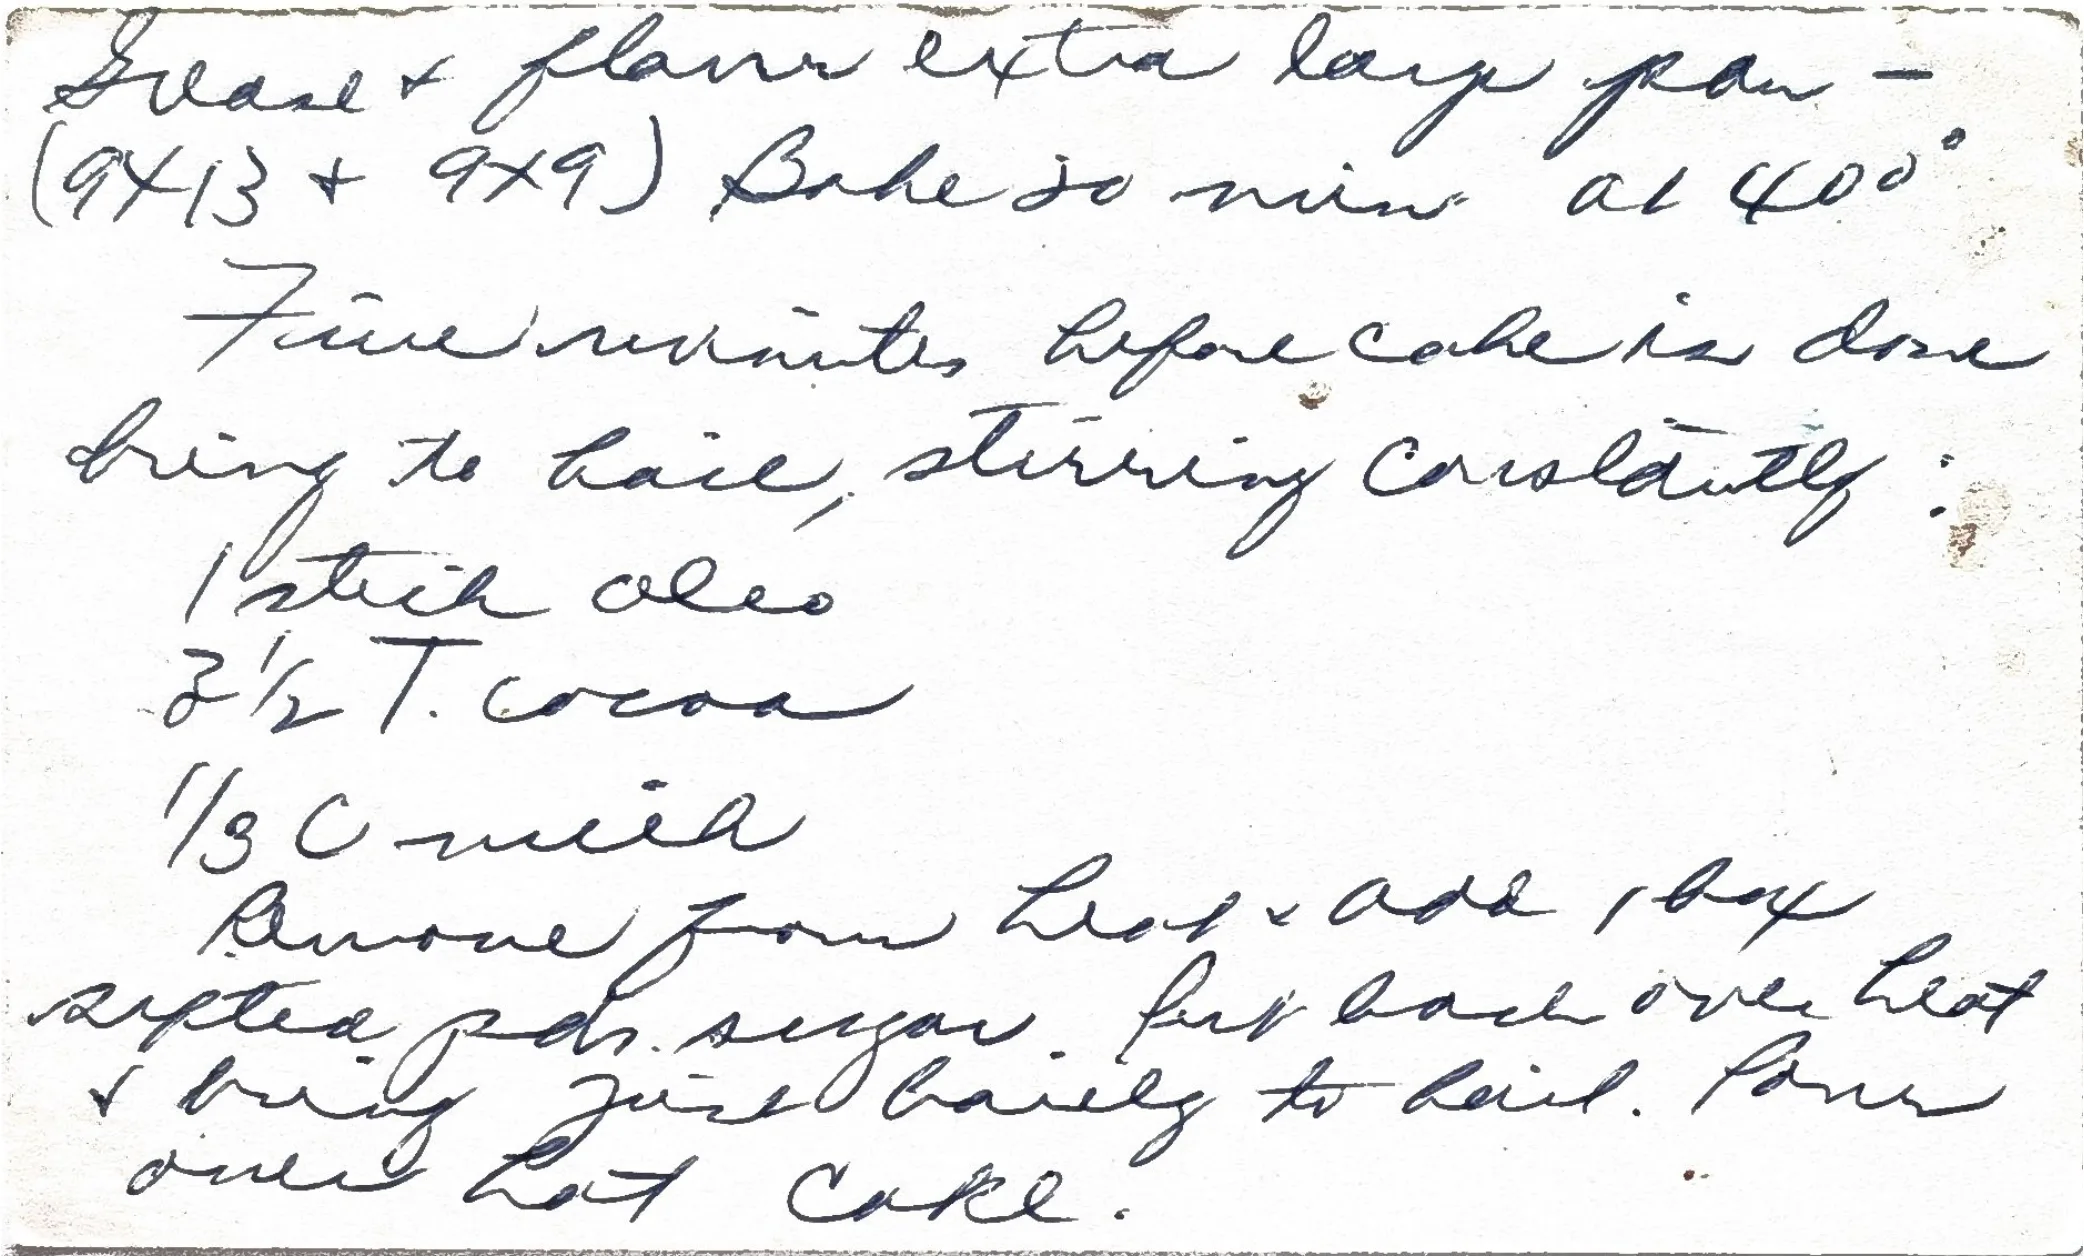 Grease & flour extra large pan -
(9x13 + 9x9) Bake 20 min. at 400°
Five minutes before cake is done
bring to boil, stirring constantly:
1 stick oleo
3 1/2 T. cocoa
1/3 C milk
Remove from heat & add 1 box
sifted pdr. sugar. Put back over heat
& bring just barely to boil. Pour
over hot cake.